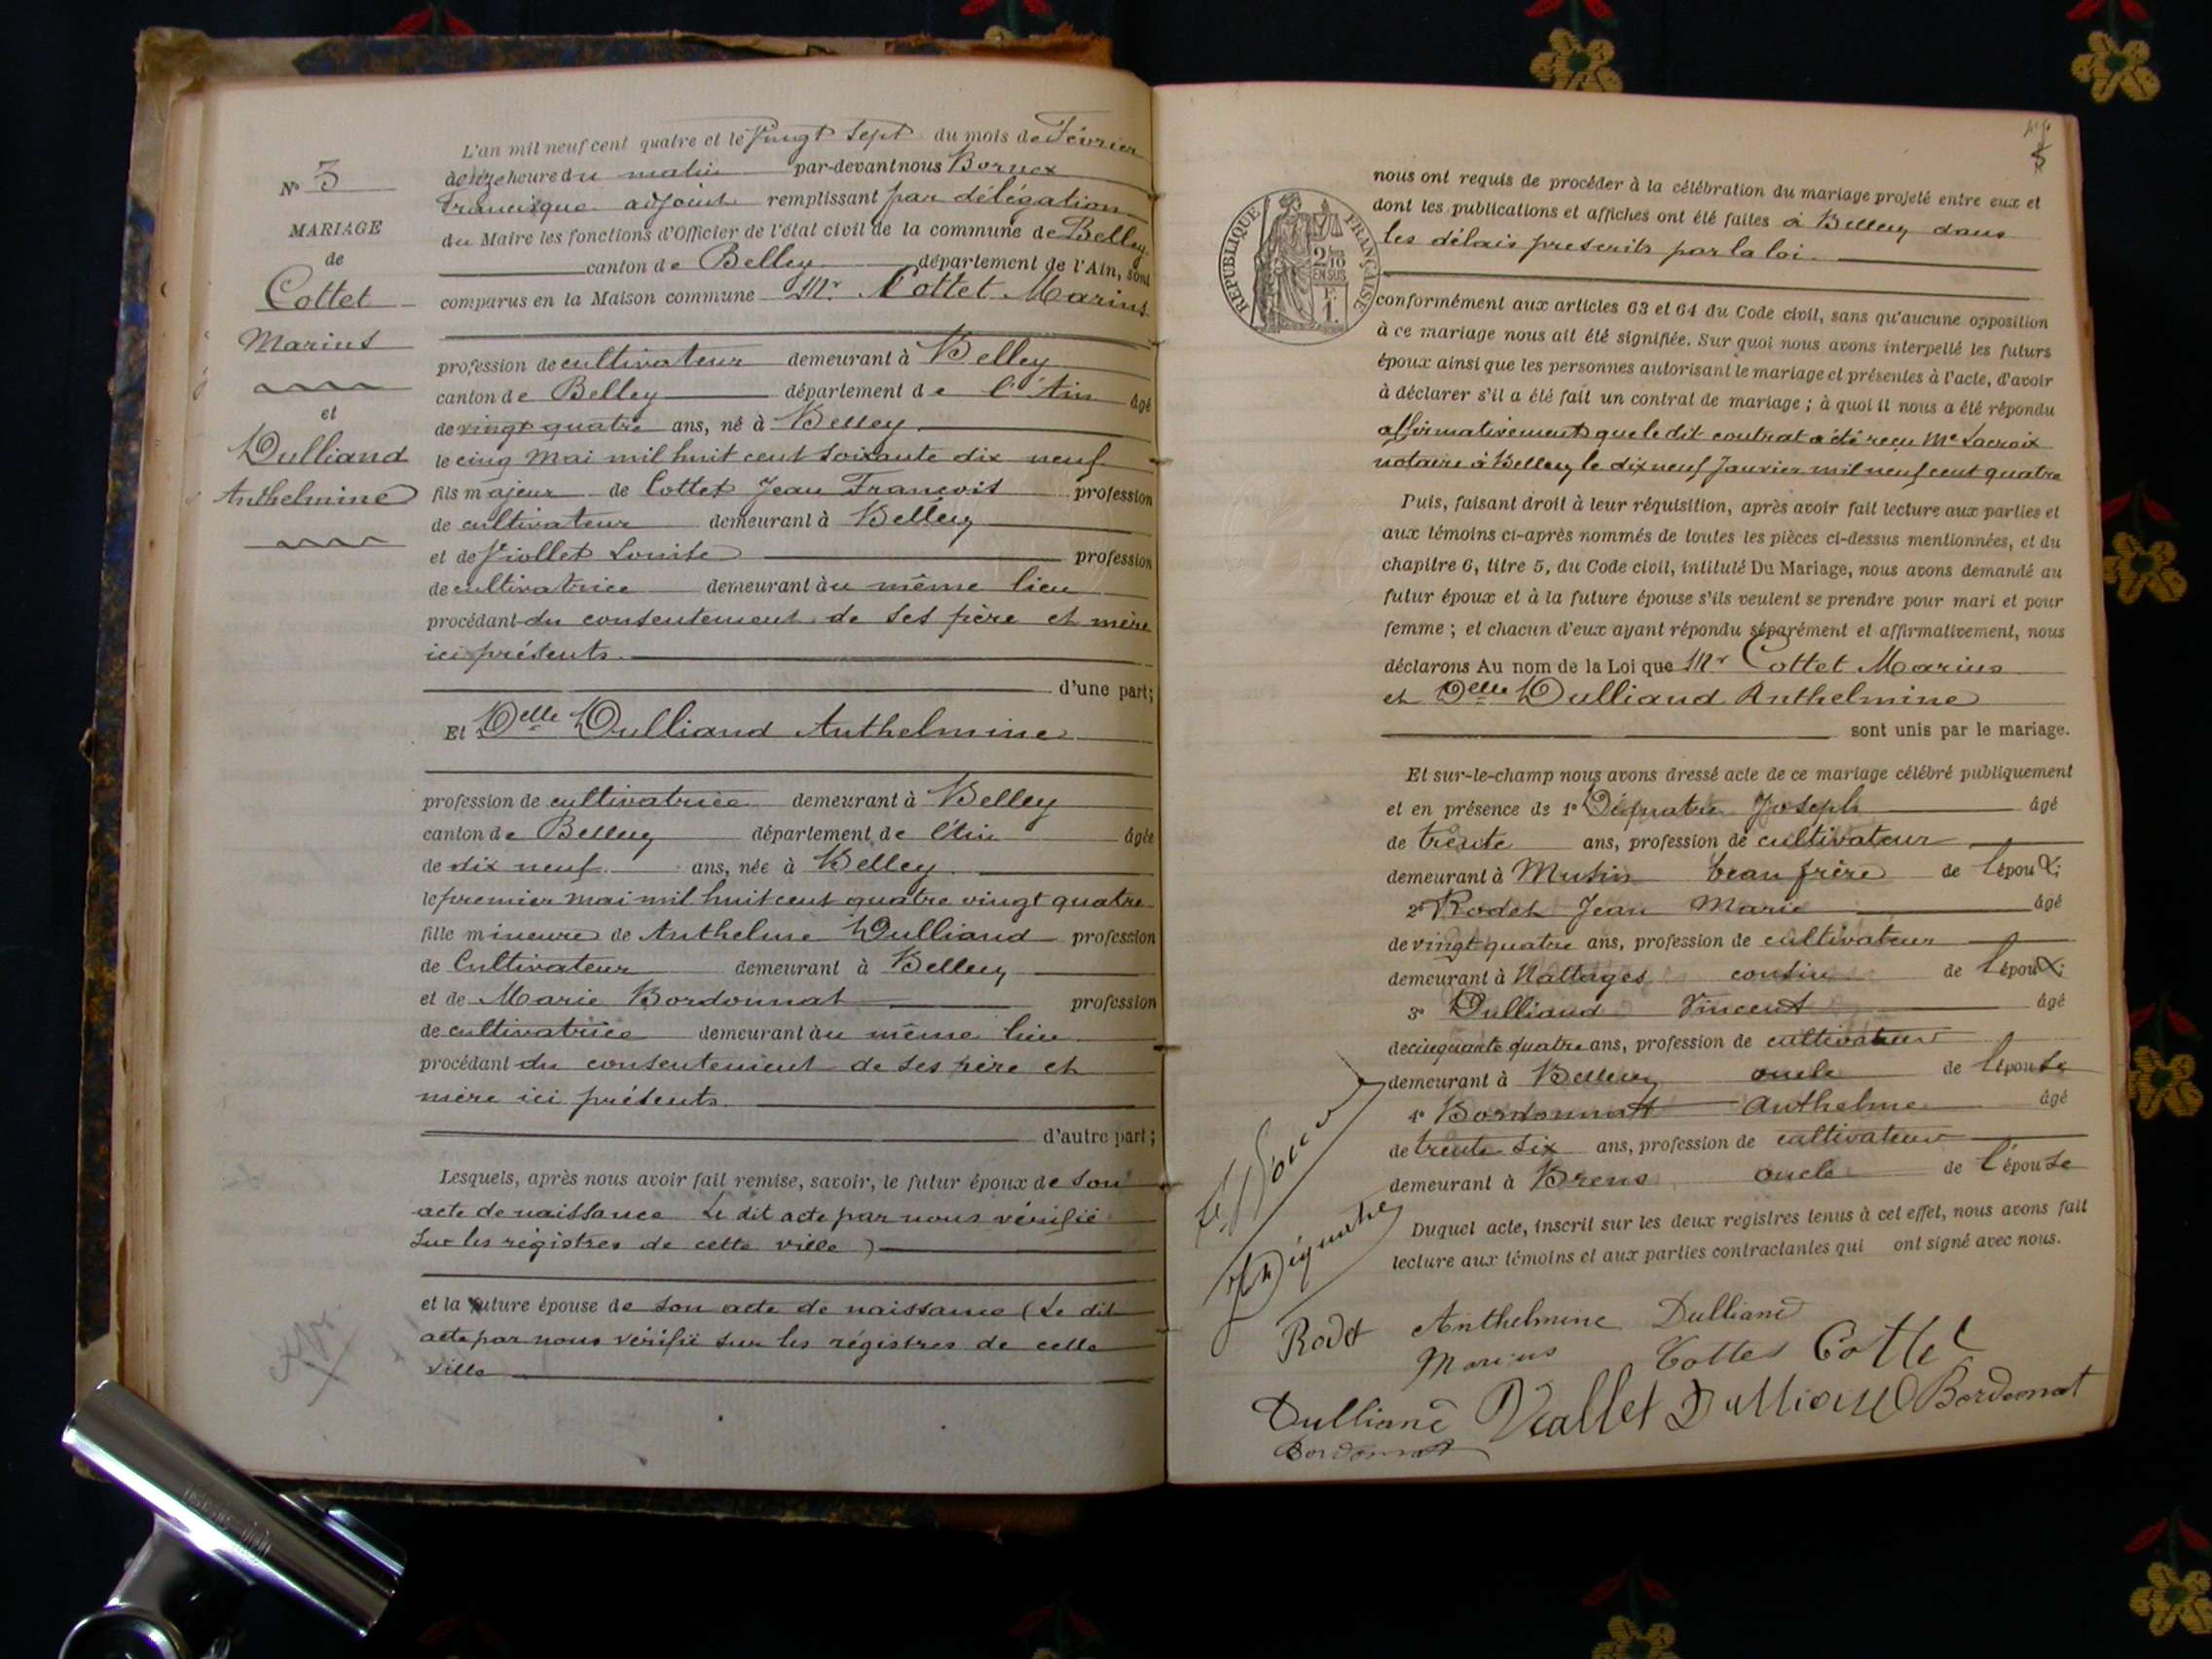 L'an mil neuf cent quatre et le Vingt Sept du mois de Février
à onze heure du matin par-devant nous Bornex
Francisque adjoint remplissant par délégation
du Maire les fonctions d'Officier de l'état civil de la commune de Belley
canton de Belley département de l'Ain, sont
comparus en la Maison commune Mr Cottet Marius
profession de cultivateur demeurant à Belley
canton de Belley département de l'Ain âgé
de vingt quatre ans, né à Belley
le cinq Mai mil huit cent soixante dix neuf
fils majeur de Cottet Jean François profession
de cultivateur demeurant à Belley
et de Viollet Louise profession
de cultivatrice demeurant au même lieu
procédant du consentement de ses père et mère
ici présents.
d'une part;
Et Delle Dulliand Anthelmine
profession de cultivatrice demeurant à Belley
canton de Belley département de l'Ain âgée
de dix neuf ans, née à Belley
le premier mai mil huit cent quatre vingt quatre
fille mineure de Anthelme Dulliand profession
de Cultivateur demeurant à Belley
et de Marie Bordonnat profession
de cultivatrice demeurant au même lieu
procédant du consentement de ses père et
mère ici présents.
d'autre part;
Lesquels, après nous avoir fait remise, savoir, le futur époux de son
acte de naissance Le dit acte par nous vérifié
sur les régistres de cette ville )
et la future épouse de son acte de naissance (Le dit
acte par nous vérifié sur les régistres de cette
ville
N° 3
MARIAGE
de
Cottet
Marius
et
Dulliand
Anthelmine
RÉPUBLIQUE FRANÇAISE
2/10
EN SUS
1 F.
nous ont requis de procéder à la célébration du mariage projeté entre eux et
dont les publications et affiches ont été faites à Belley dans
les délais prescrits par la loi.
conformément aux articles 63 et 64 du Code civil, sans qu'aucune opposition
à ce mariage nous ait été signifiée. Sur quoi nous avons interpellé les futurs
époux ainsi que les personnes autorisant le mariage et présentes à l'acte, d'avoir
à déclarer s'il a été fait un contrat de mariage; à quoi il nous a été répondu
affirmativement que le dit contrat a été reçu Me Lacroix
notaire à Belley le dix neuf Janvier mil neuf cent quatre
Puis, faisant droit à leur réquisition, après avoir fait lecture aux parties et
aux témoins ci-après nommés de toutes les pièces ci-dessus mentionnées, et du
chapitre 6, titre 5, du Code civil, intitulé Du Mariage, nous avons demandé au
futur époux et à la future épouse s'ils veulent se prendre pour mari et pour
femme; et chacun d'eux ayant répondu séparément et affirmativement, nous
déclarons Au nom de la Loi que Mr Cottet Marius
et Delle Dulliand Anthelmine
sont unis par le mariage.
Et sur-le-champ nous avons dressé acte de ce mariage célébré publiquement
et en présence de 1° Déquatre Joseph âgé
de trente ans, profession de cultivateur
demeurant à Musin beau frère de l'époux;
2° Rodet Jean Marie âgé
de vingt quatre ans, profession de cultivateur
demeurant à Nattages cousin de l'époux;
3° Dulliand Vincent âgé
de cinquante quatre ans, profession de cultivateur
demeurant à Belley oncle de l'épouse
4° Bordonnat Anthelme âgé
de trente six ans, profession de cultivateur
demeurant à Brens oncle de l'épouse
Duquel acte, inscrit sur les deux registres tenus à cet effet, nous avons fait
lecture aux témoins et aux parties contractantes qui ont signé avec nous.
Déquatre
Rodet Anthelmine Dulliand
Marius Cottet Cottet
Dulliand Viallet Dulliand Bordonnat
Bordonnat